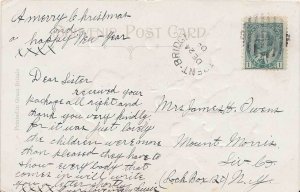 A merry Christmas
and
a happy New Year
xxxx
POST CARD
DE 24
Dear Sister
received your
package all right and
thank you very kindly
for it was just lovely
the children were more
than pleased they have to
show every body that
comes in will write
you a letter
Mrs James H. Owens
Mount Morris
Liv Co
(Lock Box 2) N.Y.
Printed in Great Britain
1